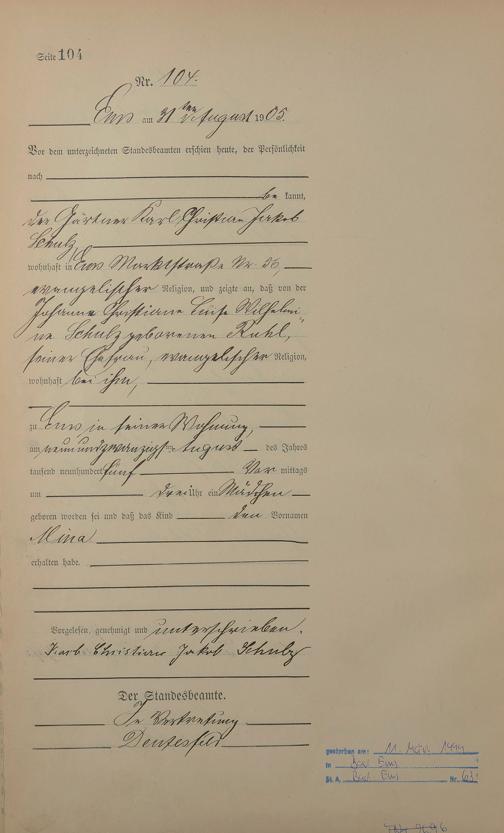 Seite 104
Nr. 104.
Ems am 31 ten August 1905.
Vor dem unterzeichneten Standesbeamten erschien heute, der Persönlichkeit
nach
be kannt,
der Gärtner Karl Christian Jakob
Schulz,
wohnhaft in Ems Marktstraße Nr.
evangelischer Religion, und zeigte an, daß von der
Johanne Christiane Luise Wilhelmi-
ne Schulz geborenen Ruhl,
seiner Ehefrau, evangelischer Religion,
wohnhaft bei ihm,
zu Ems in seiner Wohnung,
am neunundzwanzigsten August des Jahres
tausend neunhundert fünf Vor mittags
um drei Uhr ein Mädchen
geboren worden sei und daß das Kind den Vornamen
Mina
erhalten habe.
Vorgelesen, genehmigt und unterschrieben.
Karl Christian Jakob Schulz
Der Standesbeamte.
In Vertretung
gestorben am: 11.
in Bad Ems
St. A. Bad Ems Nr. 63